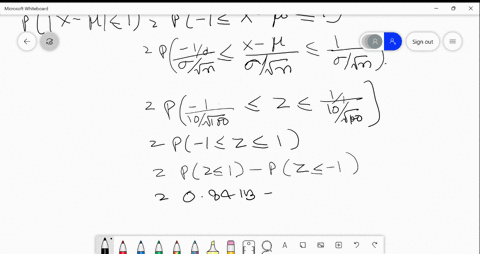 Microsoft Whiteboard
P(|X-μ|≤1) = P(-1 ≤ X-μ ≤ 1)
Sign out
= P(-1/σ/√n ≤ X-μ/σ/√n ≤ 1/σ/√n).
= P(-1/10/√100 ≤ Z ≤ 1/10/√100)
= P(-1 ≤ Z ≤ 1)
= P(Z≤1) - P(Z≤-1)
= 0.8413 -